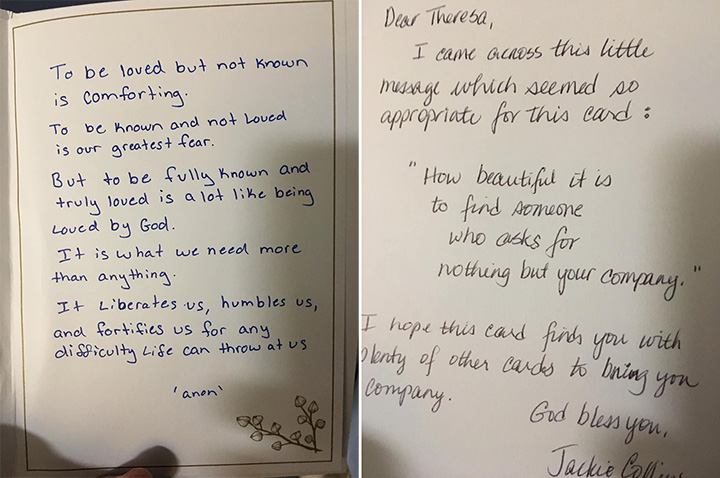 To be loved but not known
is comforting.
To be known and not loved
is our greatest fear.
But to be fully known and
truly loved is a lot like being
loved by God.
It is what we need more
than anything.
It Liberates us, humbles us,
and fortifies us for any
difficulty Life can throw at us
'anon'
Dear Theresa,
I came across this little
message which seemed so
appropriate for this card:
"How beautiful it is
to find someone
who asks for
nothing but your company."
I hope this card finds you with
plenty of other cards to bring you
company.
God bless you,
Jackie Collins